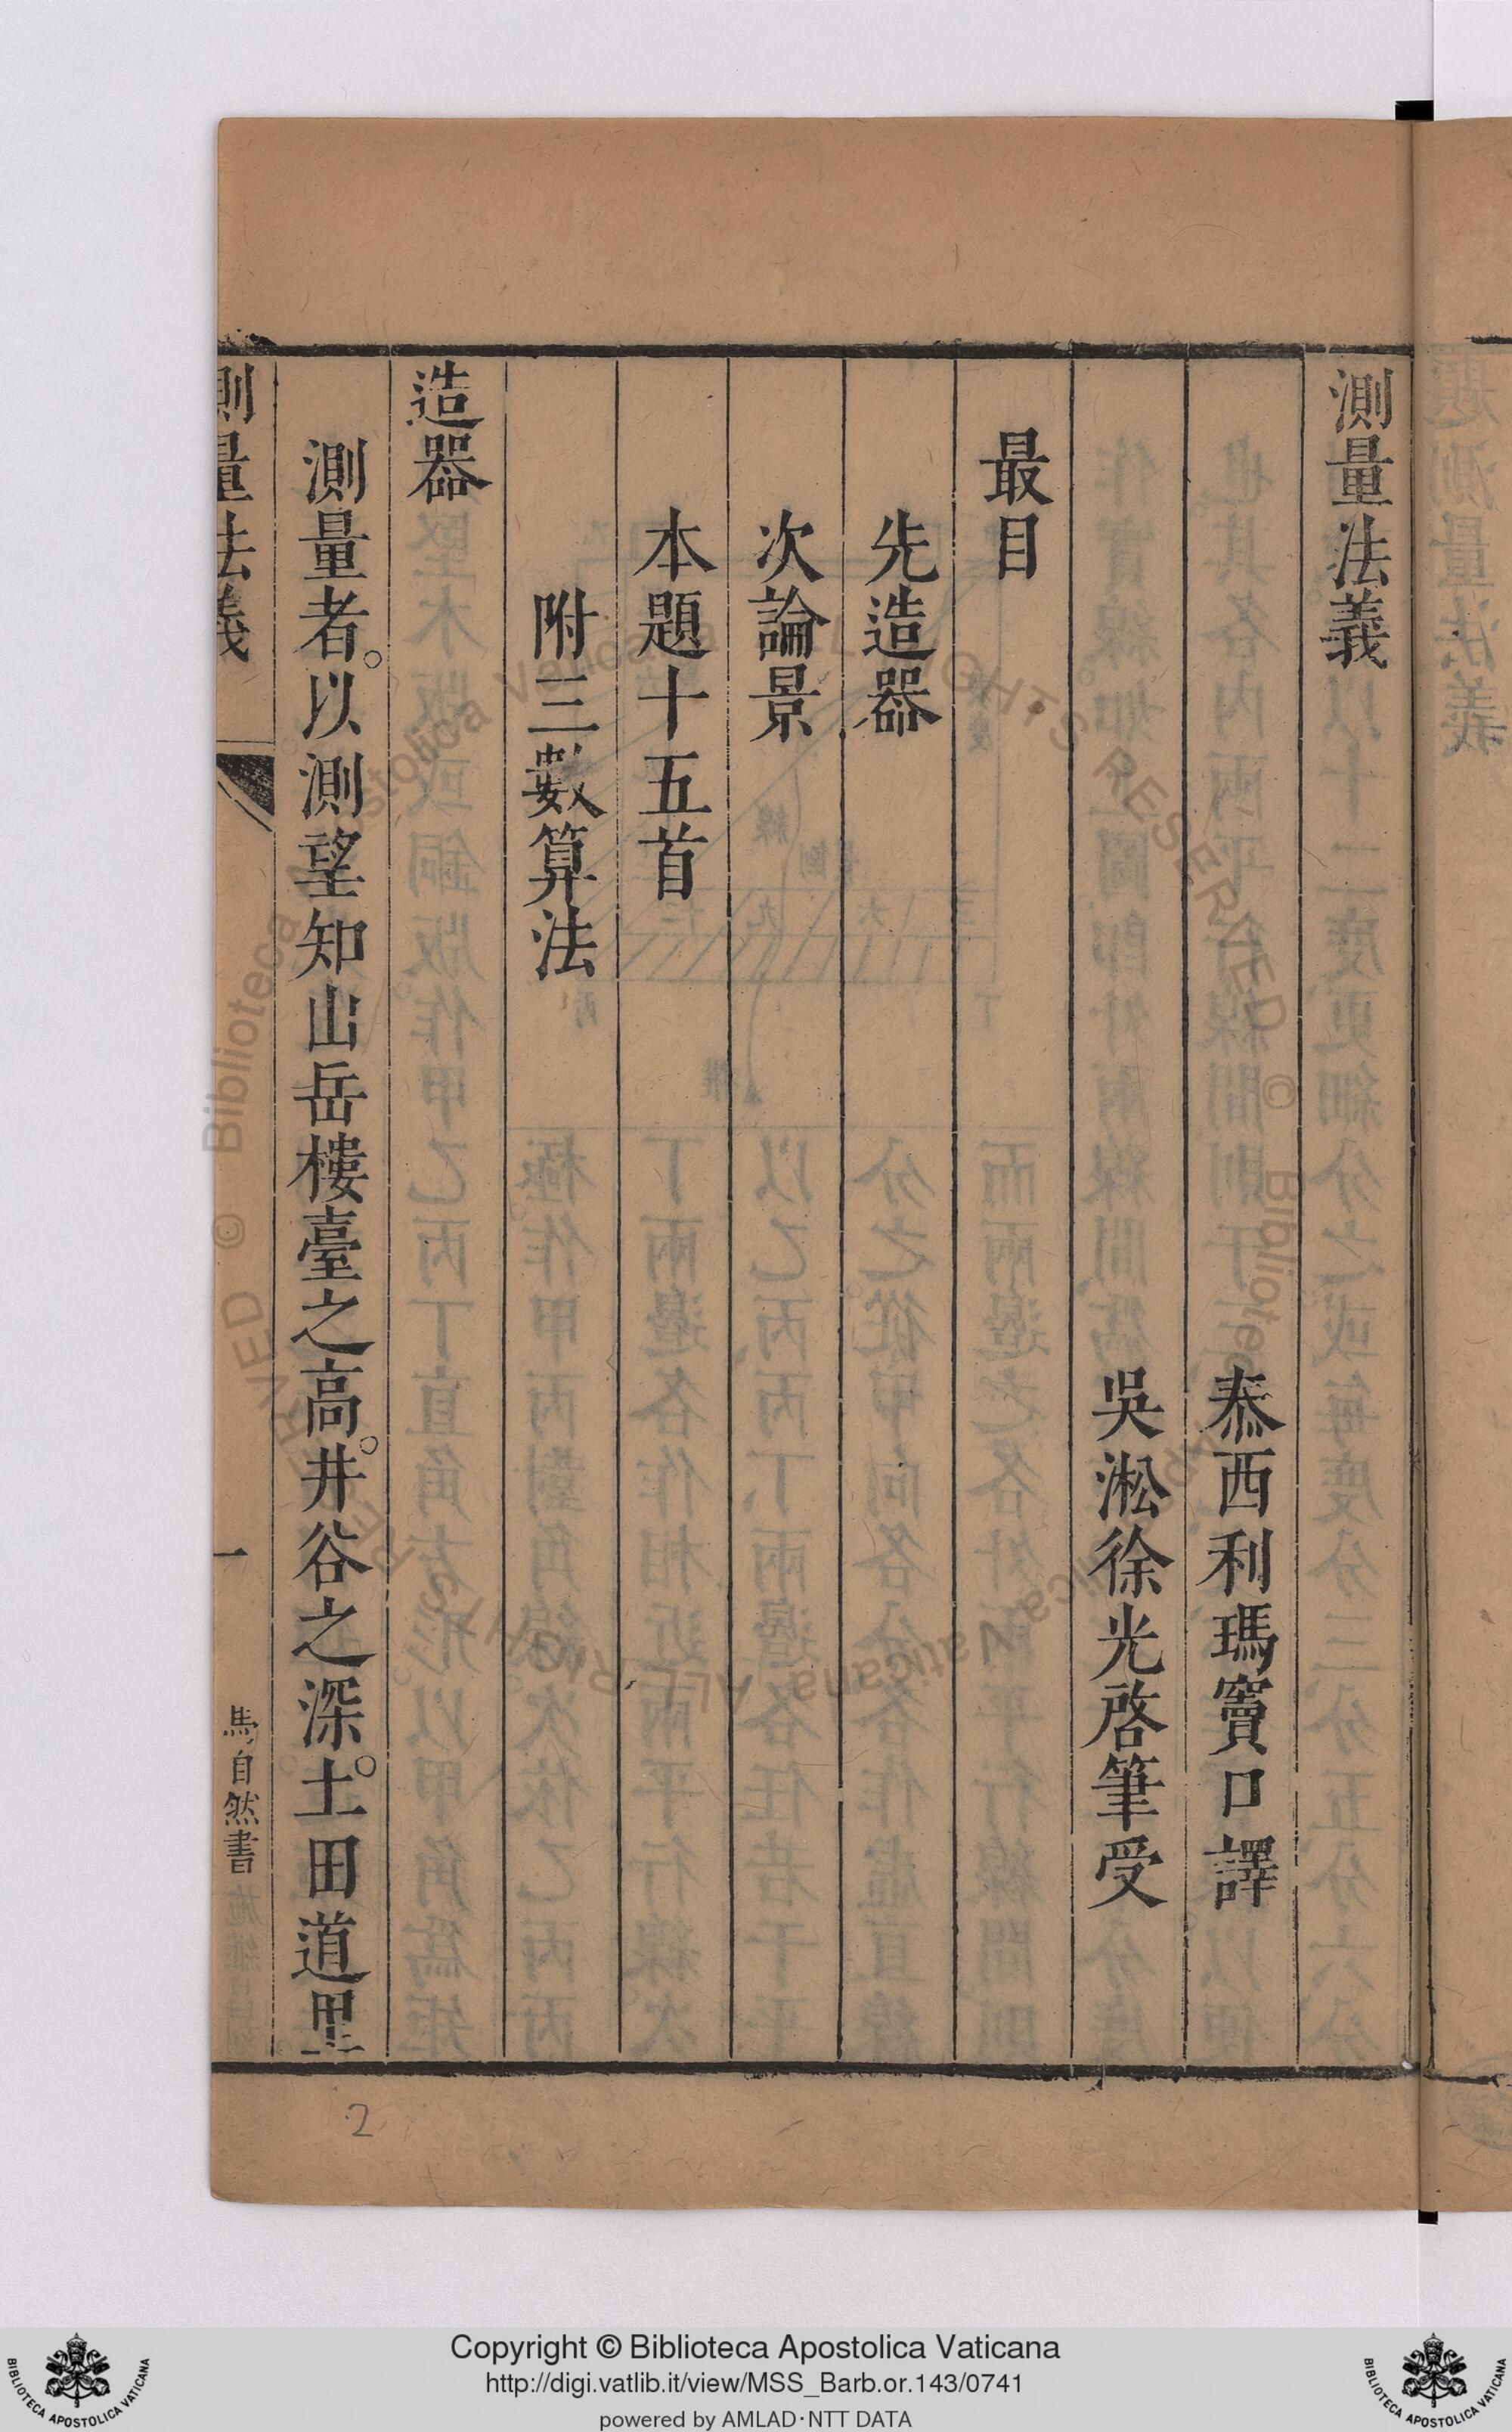 測量法義
泰西利瑪竇口譯
吳淞徐光啓筆受
最目
先造器
次論景
本題十五首
附三數算法
造器
測量者。以測望知山岳樓臺之高。井谷之深。土田道里
測量法義
一
馬自然書
2
Copyright © Biblioteca Apostolica Vaticana
http://digi.vatlib.it/view/MSS_Barb.or.143/0741
powered by AMLAD·NTT DATA
BIBLIOTECA APOSTOLICA VATICANA
BIBLIOTECA APOSTOLICA VATICANA